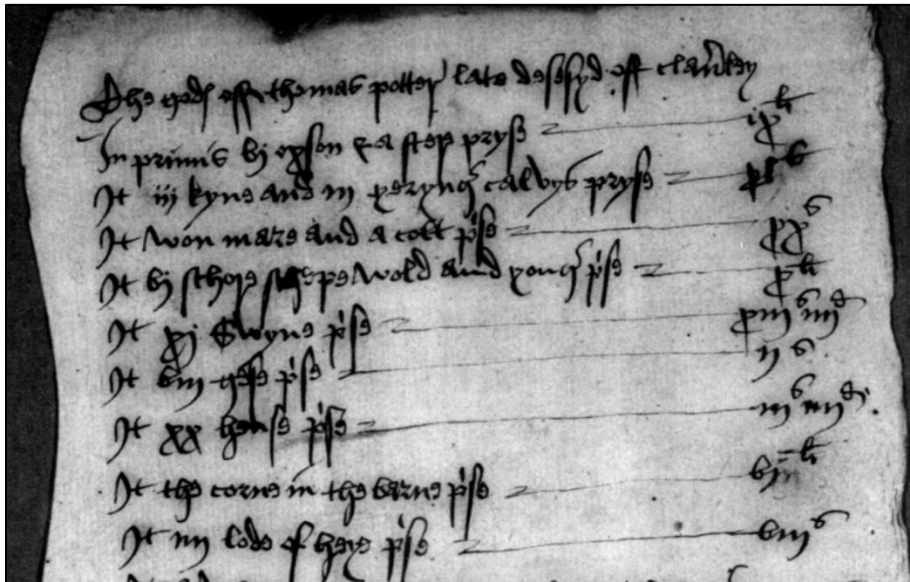 The gods off thomas potter late desesyd off claverley
In primis vj oxson & a stere pryse ix li
It iij kyne and iij yeryng calvys pryse xl s
It won mare and a colt p'se xx s
It vj schore schepe wold and yong p'se x li
It xj Swyne p'se xiij s iiij d
It viij gese p'se ij s
It xx hense p'se iij s iiij d
It the corne in the barne p'se li
It iiij lode of heye p'se viij s